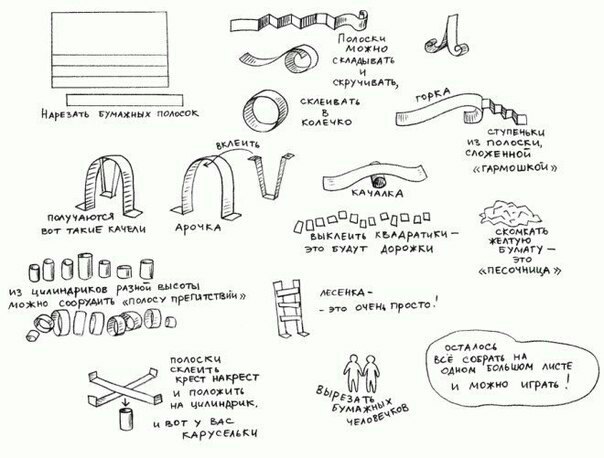 Нарезать бумажных полосок
Полоски
можно
складывать
и
скручивать,
склеивать
в
колечко
горка
ступеньки
из полоски,
сложенной
«гармошкой»
вклеить
получаются
вот такие качели
арочка
качалка
выклеить квадратики –
это будут дорожки
скомкать
желтую
бумагу –
это
«песочница»
из цилиндриков разной высоты
можно соорудить «полосу препятствий»
лесенка –
– это очень просто!
полоски
склеить
крест накрест
и положить
на цилиндрик,
и вот у вас
карусельки
вырезать
бумажных
человечков
осталось
всё собрать на
одном большом листе
и можно играть!